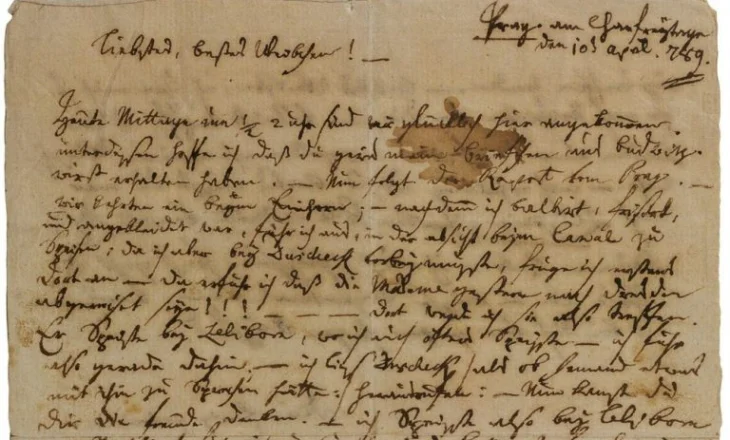 Prag am Charfreytage
den 10t April. 789.
Liebstes, bestes Weibchen! —
Heute Mittags um 1/2 2 uhr sind wir glücklich hier angekommen.
unterdessen hoffe ich daß du gewis mein briefchen aus budwitz
wirst erhalten haben. — Nun folgt der Rapport von Prag. —
wir kehrten ein beym Einhorn; — nachdem ich balbirt, frisirt,
und angekleidet war, fuhr ich aus, in der absicht beym Canal zu
Speisen; da ich aber bey Duscheck vorbey musste, frug ich erstens
dort an — da erfuhr ich daß die Madame gestern nach dresden
abgereiset seye!!! — — — — dort werde ich sie also treffen.
Er Speiste bey Leliborn, wo ich auch öfters Speiste — ich fuhr
also gerade dahin. — ich ließ Duscheck (als ob jemand etwas
mit ihm zu Sprechen hätte) herausrufen: — Nun kannst du
dir die freude denken. — ich Speiste also bey Leliborn